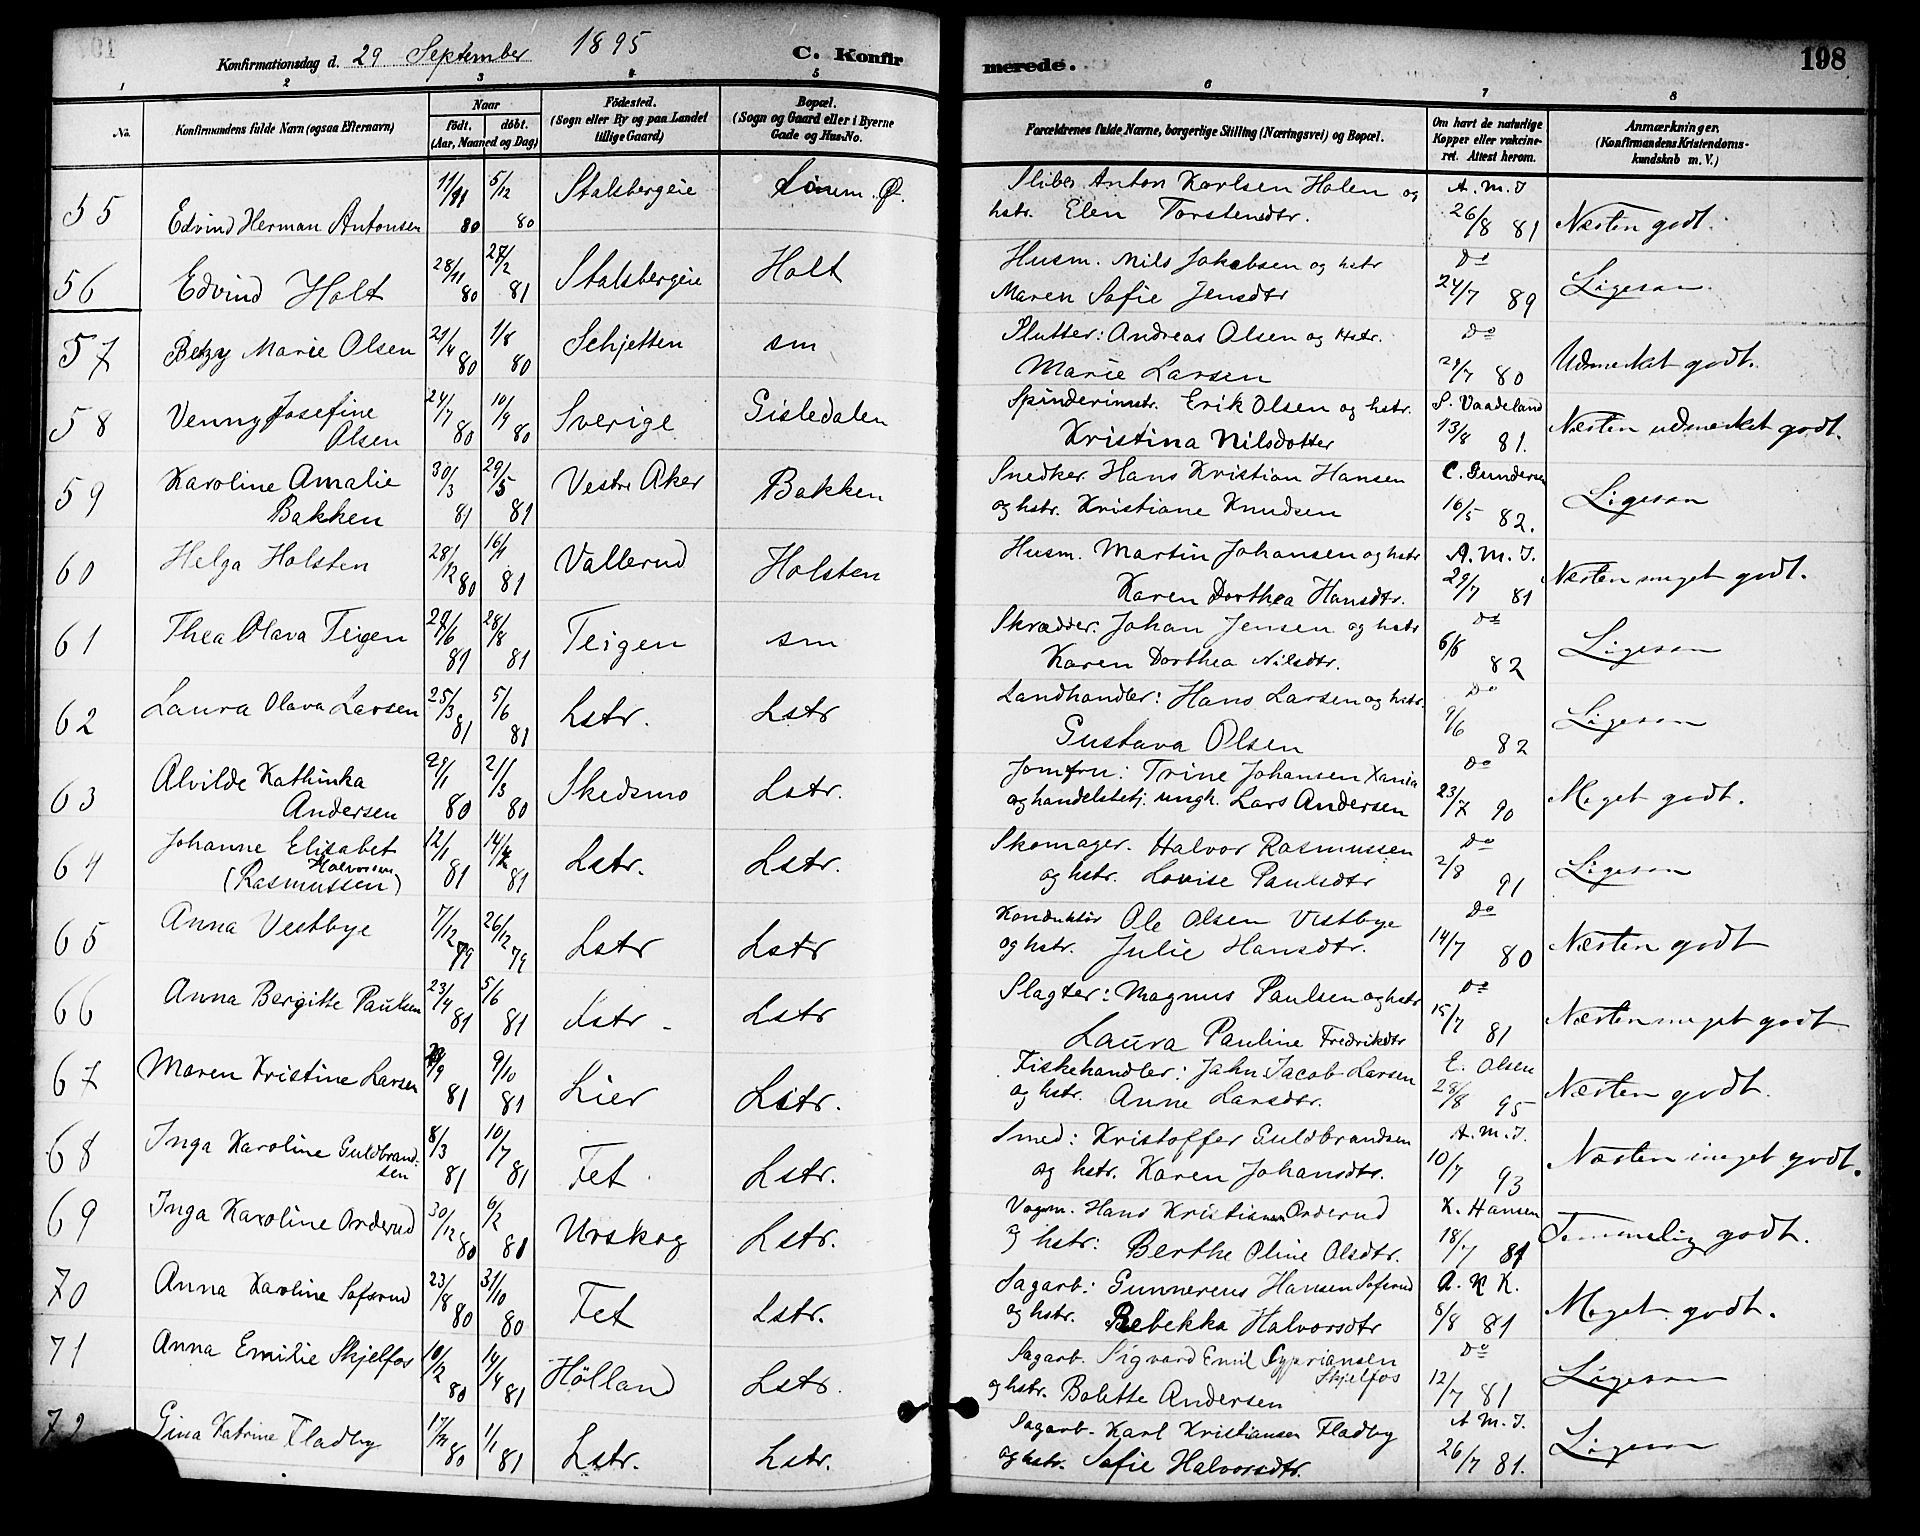 Konfirmationsdag d. 29 September 1895 C. Konfirmerede. 198
1 2 3 4 5 6 7 8
No. Konfirmandens fulde Navn (ogsaa Efternavn) Naar født. døbt. (Aar, Maaned og Dag) Fødested. (Sogn eller By og paa Landet tillige Gaard) Bopæl. (Sogn og Gaard eller i Byerne Gade og Hus-No. Forældrenes fulde Navne, borgerlige Stilling (Næringsvei) og Bopæl. Om havt de naturlige Kopper eller vakcineret. Attest herom. Anmærkninger. (Konfirmandens Kristendomskundskab m. V.)
55 Edvind Herman Antonsen 11/11 80 5/12 80 Stalsbergeie Ø. Sliber Anton Karlsen Holen og hstr. Elen Torstensdtr. A. M. J 26/8 81 Næsten godt.
56 Edvind Holt 28/11 80 27/2 81 Stalsbergeie Holt Husm. Nils Jakobsen og hstr Maren Sofie Jensdtr Do 24/7 89 Ligesaa.
57 Betzy Marie Olsen 21/4 80 1/8 80 Schjetten sm Slutter: Andreas Olsen og Hstr. Marie Larsen Do 29/7 80 Udmerket godt.
58 Venny Josefine Olsen 24/7 80 10/9 80 Sverige Gisledalen Spinderimstr. Erik Olsen og hstr. Kristina Nilsdotter S. Vaadeland 13/8 81. Næsten udmerket godt.
59 Karoline Amalie Bakken 30/3 81 29/5 81 Vestre Aker Bakken Snedker Hans Kristian Hansen og hstr. Kristiane Knudsen C. Gundersen 16/5 82. Ligesaa
60 Helga Holsten 28/12 80 16/1 81 Vallerud Holsten Husm. Martin Johansen og hstr Karen Dorthea Hansdtr. A. M. J. 29/7 81 Næsten meget godt.
61 Thea Olava Teigen 27/6 81 28/8 81 Teigen sm Skrædder. Johan Jensen og hstr Karen Dorthea Nilsdtr. Do 6/6 82 Ligesaa
62 Laura Olava Larsen 25/3 81 5/6 81 Lstr. Lstr Landhandler: Hans Larsen og hstr. Gustava Olsen Do 9/6 82 Ligesaa
63 Alvilde Kathinka Andersen 29/1 80 21/3 80 Skedsmo Lstr. Jomfru: Trine Johansen Xania og handelsbetj. ungk. Lars Andersen Do 23/7 90 Meget godt.
64 Johanne Elisabet Halvorsen (Rasmussen) 12/1 81 14/4 81 Lstr. Lstr. Skomager. Halvor Rasmussen og hstr. Lovise Paulsdtr Do 2/8 91 Ligesaa
65 Anna Vestbye 7/12 79 26/12 79 Lstr Lstr Konduktør Ole Olsen Vestbye og hstr. Julie Hansdtr. Do 14/7 80 Næsten godt
66 Anna Bergitte Paulsen 23/4 81 5/6 81 Lstr. Lstr Slagter: Magnus Paulsen og hstr Laura Pauline Fredriksdtr Do 15/7 81 Næsten meget godt
67 Maren Kristine Larsen 81 9/10 81 Lier Lstr. Fiskehandler: Jahn Jacob Larsen og hstr. Anne Larsdtr. E. Olsen 28/8 95 Næsten godt.
68 Inga Karoline Guldbrandsen 8/3 81 10/7 81 Fet Lstr. Smed: Kristoffer Guldbrandsen og hstr. Karen Johansdtr. A. M. J. 10/7 93 Næsten meget godt.
69 Inga Karoline Orderud 30/12 80 6/2 81 Urskog Lstr. Vogm. Hans Kristiansen Orderud og hstr: Berthe Oline Olsdtr. K. Hansen 18/7 81 Temmelig godt.
70 Anna Karoline Sofsrud 23/8 80 31/10 80 Fet Lstr. Sagarb: Gunnereus Hansen Sofsrud og hstr. Rebekka Halvorsdtr A. K K. 8/8 81 Meget godt.
71 Anna Emilie Skjelfos 10/12 80 14/4 81 Hølland Lstr. Sagarb. Sigvard Emil Cypriansen Skjelfos og hstr. Bolette Andersen Do 12/7 81 Ligesaa
72 Gina Katrine Fladby 17/11 80 1/1 81 Lstr. Lstr. Sagarb. Karl Kristiansen Fladby og hstr. Sofie Halvorsdtr. A M. J. 26/7 81. Ligesaa